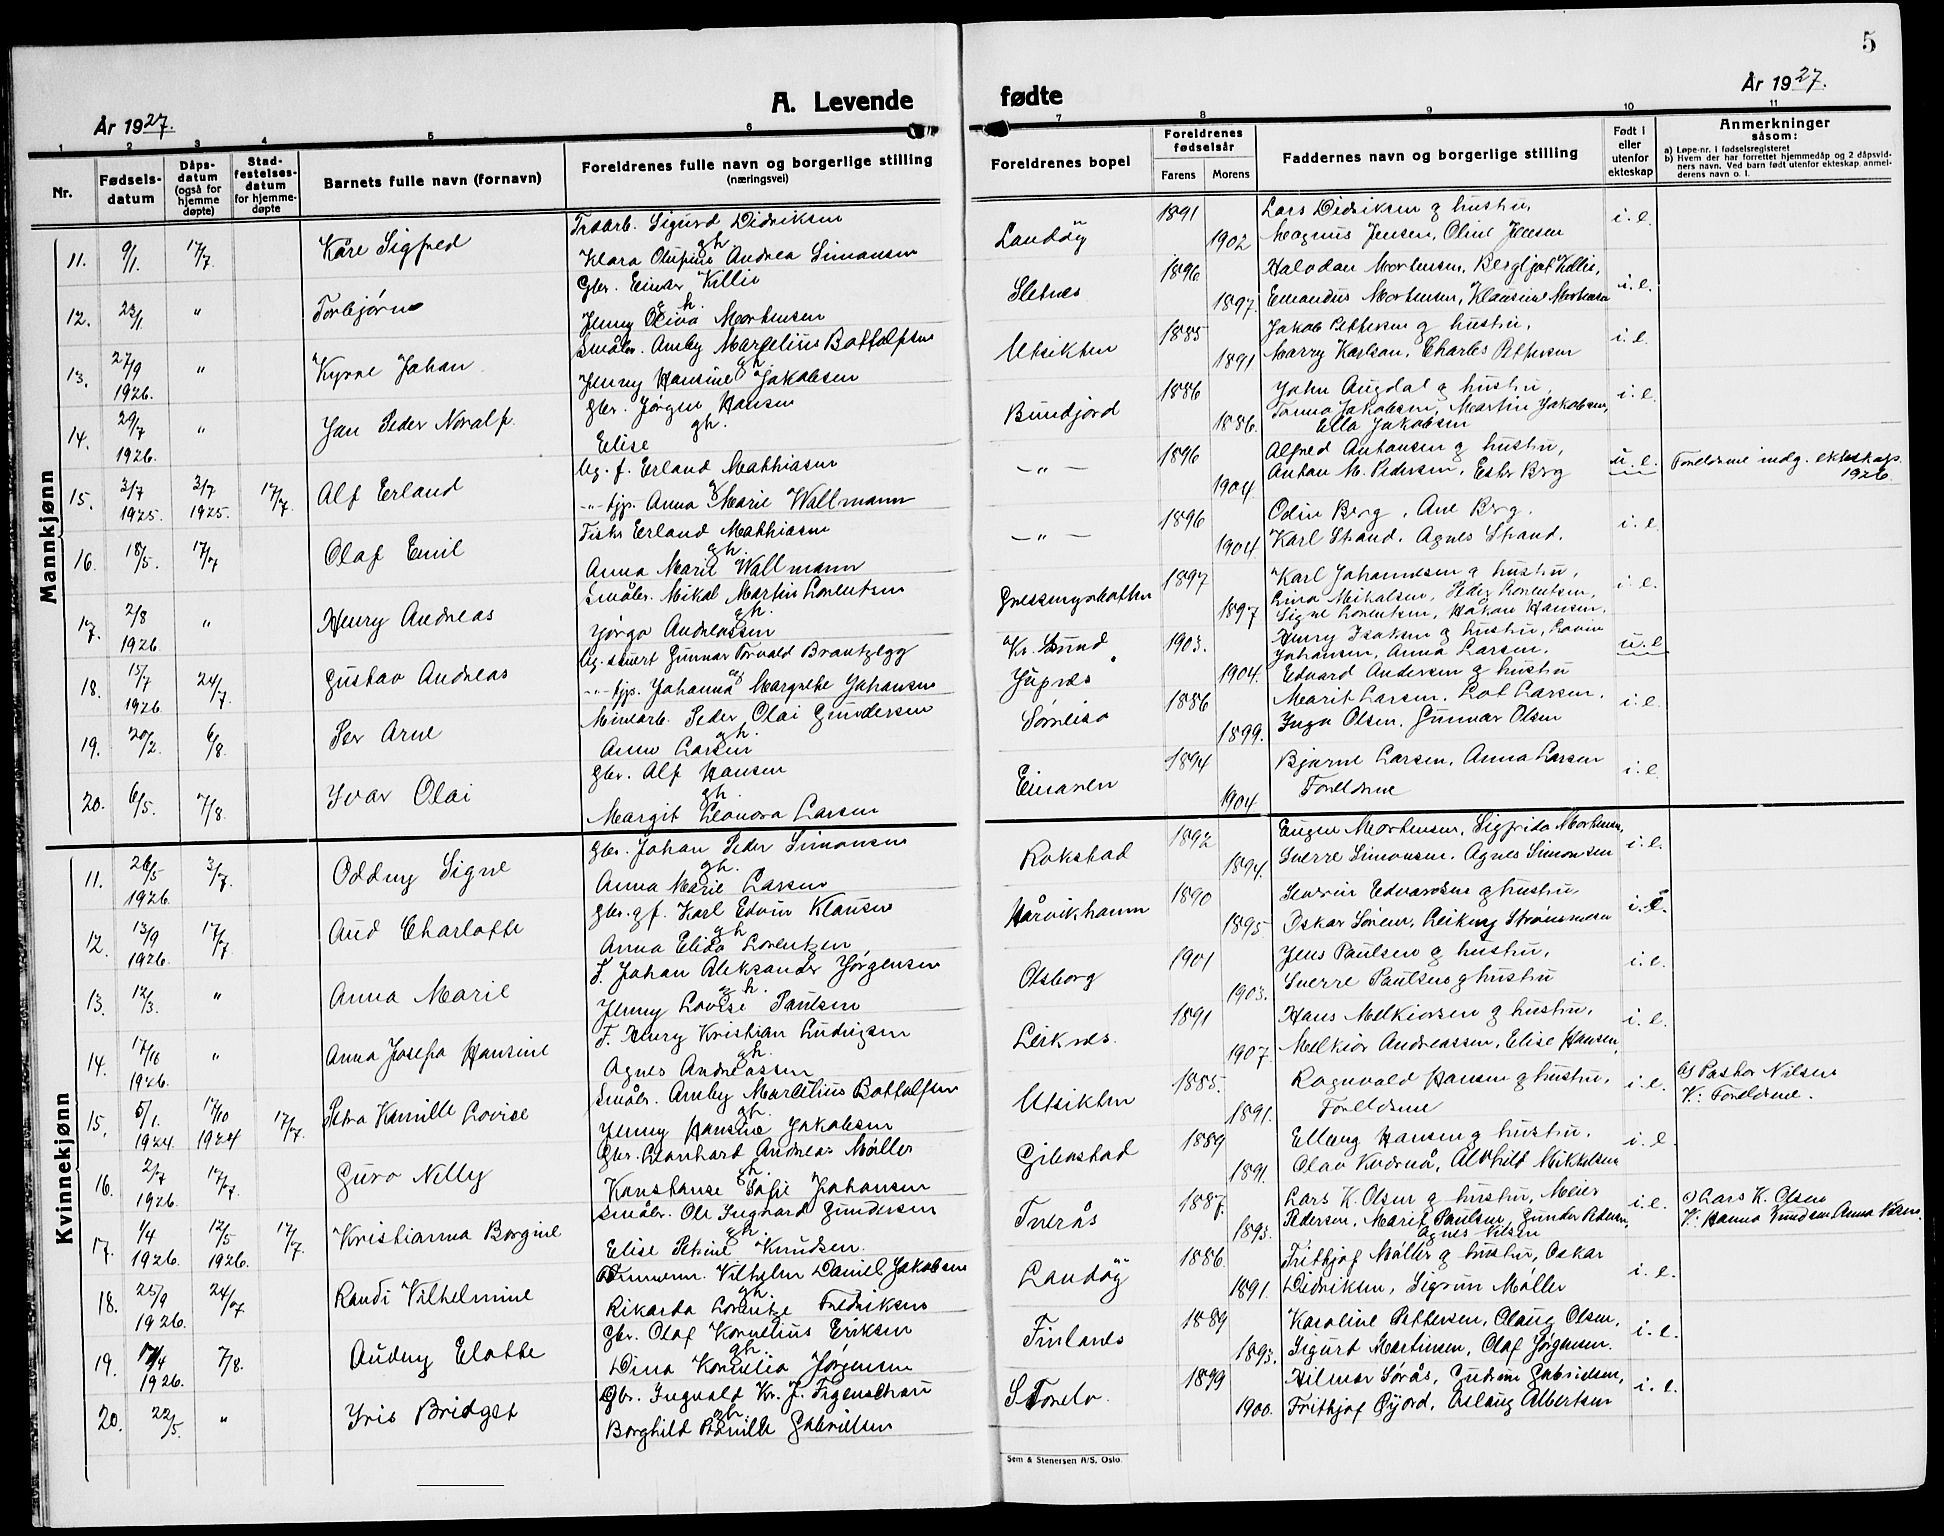 5
År 1927.
A. Levende
fødte
År 1927.
1 2 3 4 5 6 7 8 9 10 11
Nr.
Fødsels-
datum
Dåps-
datum
(også for
hjemme
døpte)
Stad-
festelses-
datum
for hjemme-
døpte
Barnets fulle navn (fornavn)
Foreldrenes fulle navn og borgerlige stilling
(næringsvei)
Foreldrenes bopel
Foreldrenes
fødselsår
Farens Morens
Faddernes navn og borgerlige stilling
Født i
eller
utenfor
ekteskap
Anmerkninger
såsom:
a) Løpe-nr. i fødselsregisteret
b) Hvem der har forrettet hjemmedåp og 2 dåpsvid-
ners navn. Ved barn født utenfor ekteskap anmel-
derens navn o. l.
Mannkjønn
11. 9/1. 17/7. Kåre Sigfred
Sigurd Didriksen
gh.
Klara Andrea Simonsen
Landøy 1891 1902
Lars Didriksen og hustru,
Magnus Jensen, Oline Jensen
i. e.
12. 23/1. " Torbjørn
Gbr. Einar Killie
gh.
Jenny Oliva Mortensen
Sletnes 1896 1897.
Halvdan Mortensen, Bergljot Killie,
Emandus Mortensen, Klausine Mortensen
i. e.
13. 27/9 1926. " Kyrre Johan
Småbr. Amby Marselius Bottolfsen
gh
Jenny Hansine Jakobsen
Utsikten 1885 1891
Jakob Pettersen og hustru,
Marry Karlsen, Charles Pettersen
i. e.
14. 29/7 1926. " Jan Peder Noralf
Gbr. Jørgen Hansen
gh.
Elise
Bundjord 1886 1886.
John Augdal og hustru,
Jakobsen, Martin Jakobsen,
Ella Jakobsen
i. e.
15. 3/7 1925. 3/7 1925. 17/7. Alf Erland
Ug. f. Erland Mathiasen
og
-"- tjp. Anna Marie Wallmann
- " - 1896 1904
Alfred Antonsen og hustru,
Anton M. Pedersen, Ester Berg
u. e.
Foreldrene indg. ekteskap
1926.
16. 18/5. 17/7 Olaf Emil
Fisk. Erland Mathiasen
gh.
Anna Marie Wallmann
- " - 1896 1904
Odin Berg, Ane Berg.
Karl Strand, Agnes Strand.
i. e
17. 2/8 1926 " Henry Andreas
Småbr. Mikal Martin Lorentsen
gh.
Jørga Andreassen
1897 1897
Karl Johannesen og hustru,
Lina Mikalsen, Peder Lorentsen,
Signe Lorentsen, Håkon Hansen.
i. e.
18. 15/7 1926. 24/7. Gustav Andreas
Ug. stuert Gunnar Torvald Brantzegg
og
-"- tjp. Johanna Margrethe Johansen
Kr. Sund 1903. 1904.
Henry Isaksen og hustru,
Johansen, Anna Larsen.
Edvard Andersen og hustru
u. e
19. 20/2. 6/8. Per Arne
Minearb. Peder Olai Gundersen
gh.
Anna Larsen
Sørreisa 1886 1899.
Marit Larsen, Lot Larsen.
Inga Olsen, Gunnar Olsen
i. e.
20. 6/5. 7/8. Ivar Olai
Gbr. Alf Hansen
gh.
Margit Leonora Larsen
1894 1904.
Bjarne Larsen, Anna Larsen
Foreldrene
i. e.
Kvinnekjønn
11. 26/5 1926. 3/7. Oddny Signe
Gbr. Johan Peder Simonsen
gh.
Anna Marie Larsen
Rokstad 1892 1894.
Eugen Mortensen, Sigfrida Mortensen,
Sverre Simonsen, Agnes Simonsen
i. e.
12. 13/9 1926. 17/7 Aud Charlotte
Gbr. g f. Karl Edvin Klausen
gh
Anna Elida Lorentzen
Hårvikhavn 1890 1895
Severin Edvardsen og hustru,
Oskar Sørem, Leikny Strømsmoen
i. e.
13. 12/3. " Anna Marie
F. Johan Aleksander Jørgensen
gh.
Jenny Lovise Paulsen
Olsborg 1901 1903.
Jens Paulsen og hustru,
Sverre Paulsen og hustru
i. e.
14. 17/10 1926. " Anna Josefa Hansine
F. Henry Kristian Ludvigsen
gh.
Agnes Andreassen
Leiknes. 1891 1907.
Hans Melkiorsen og hustru,
Melkior Andreassen, Elise Hansen,
i. e.
15. 5/1. 1924 17/10 1924 17/7. Petra Kamille Lovise
Småbr. Amby Marselius Bottolfsen
gh.
Jenny Hansine Jakobsen
Utsikten 1885. 1891.
Ragnvald Hansen og hustru,
Foreldrene
i. e.
b) Pastor Nilsen
V: Foreldrene.
16. 2/7 1926. 17/7. Guro Nelly
Gbr. Leonhard Andreas Møller
gh.
Konstanse Sofie Johansen
Gibostad 1889 1891.
Elling Hansen og hustru,
Olav Kvernå, Alvhild Mikkelsen
i. e.
17. 1/4 1926. 12/5 1926. 17/7. Kristianna Borgine
Småbr. Ole Ingvard Gundersen
gh.
Elise Petrine Knudsen.
Tverås 1887. 1893.
Lars K. Olsen og hustru, Meier
Pedersen, Marit Paulsen, Gunder Pedersen,
Agnes Nilsen
i. e.
b) Lars K. Olsen
V: Hanna Knudsen, Anna
18. 25/9 1926. 24/7 Randi Vilhelmine
Vilhelm Daniel Jakobsen
gh.
Rikarda Lorentze Fredriksen
Landøy 1886. 1891.
Frithjof Møller og hustru, Oskar
Didriksen, Sigrun Møller
i. e.
19. 17/4 1926. 7/8. Audny Elotte
Gbr. Olaf Kornelius Eriksen
gh.
Dina Kornelia Jørgensen
Finlanes 1889 1893.
Karoline Pettersen, Olaug Olsen,
Sigurd Martinsen, Olaf Jørgensen.
i. e.
20. 22/5. " Iris Bridget
Gbr. Ingvald Kr. J. Figenschau
gh.
Borghild Gabrielsen
1899 1900.
Hilmar Sørås, Gudrun Gabrielsen,
Fritkjof Øyjord, Aslaug Albertsen
i. e.
Sem & Stenersen A/S. Oslo.